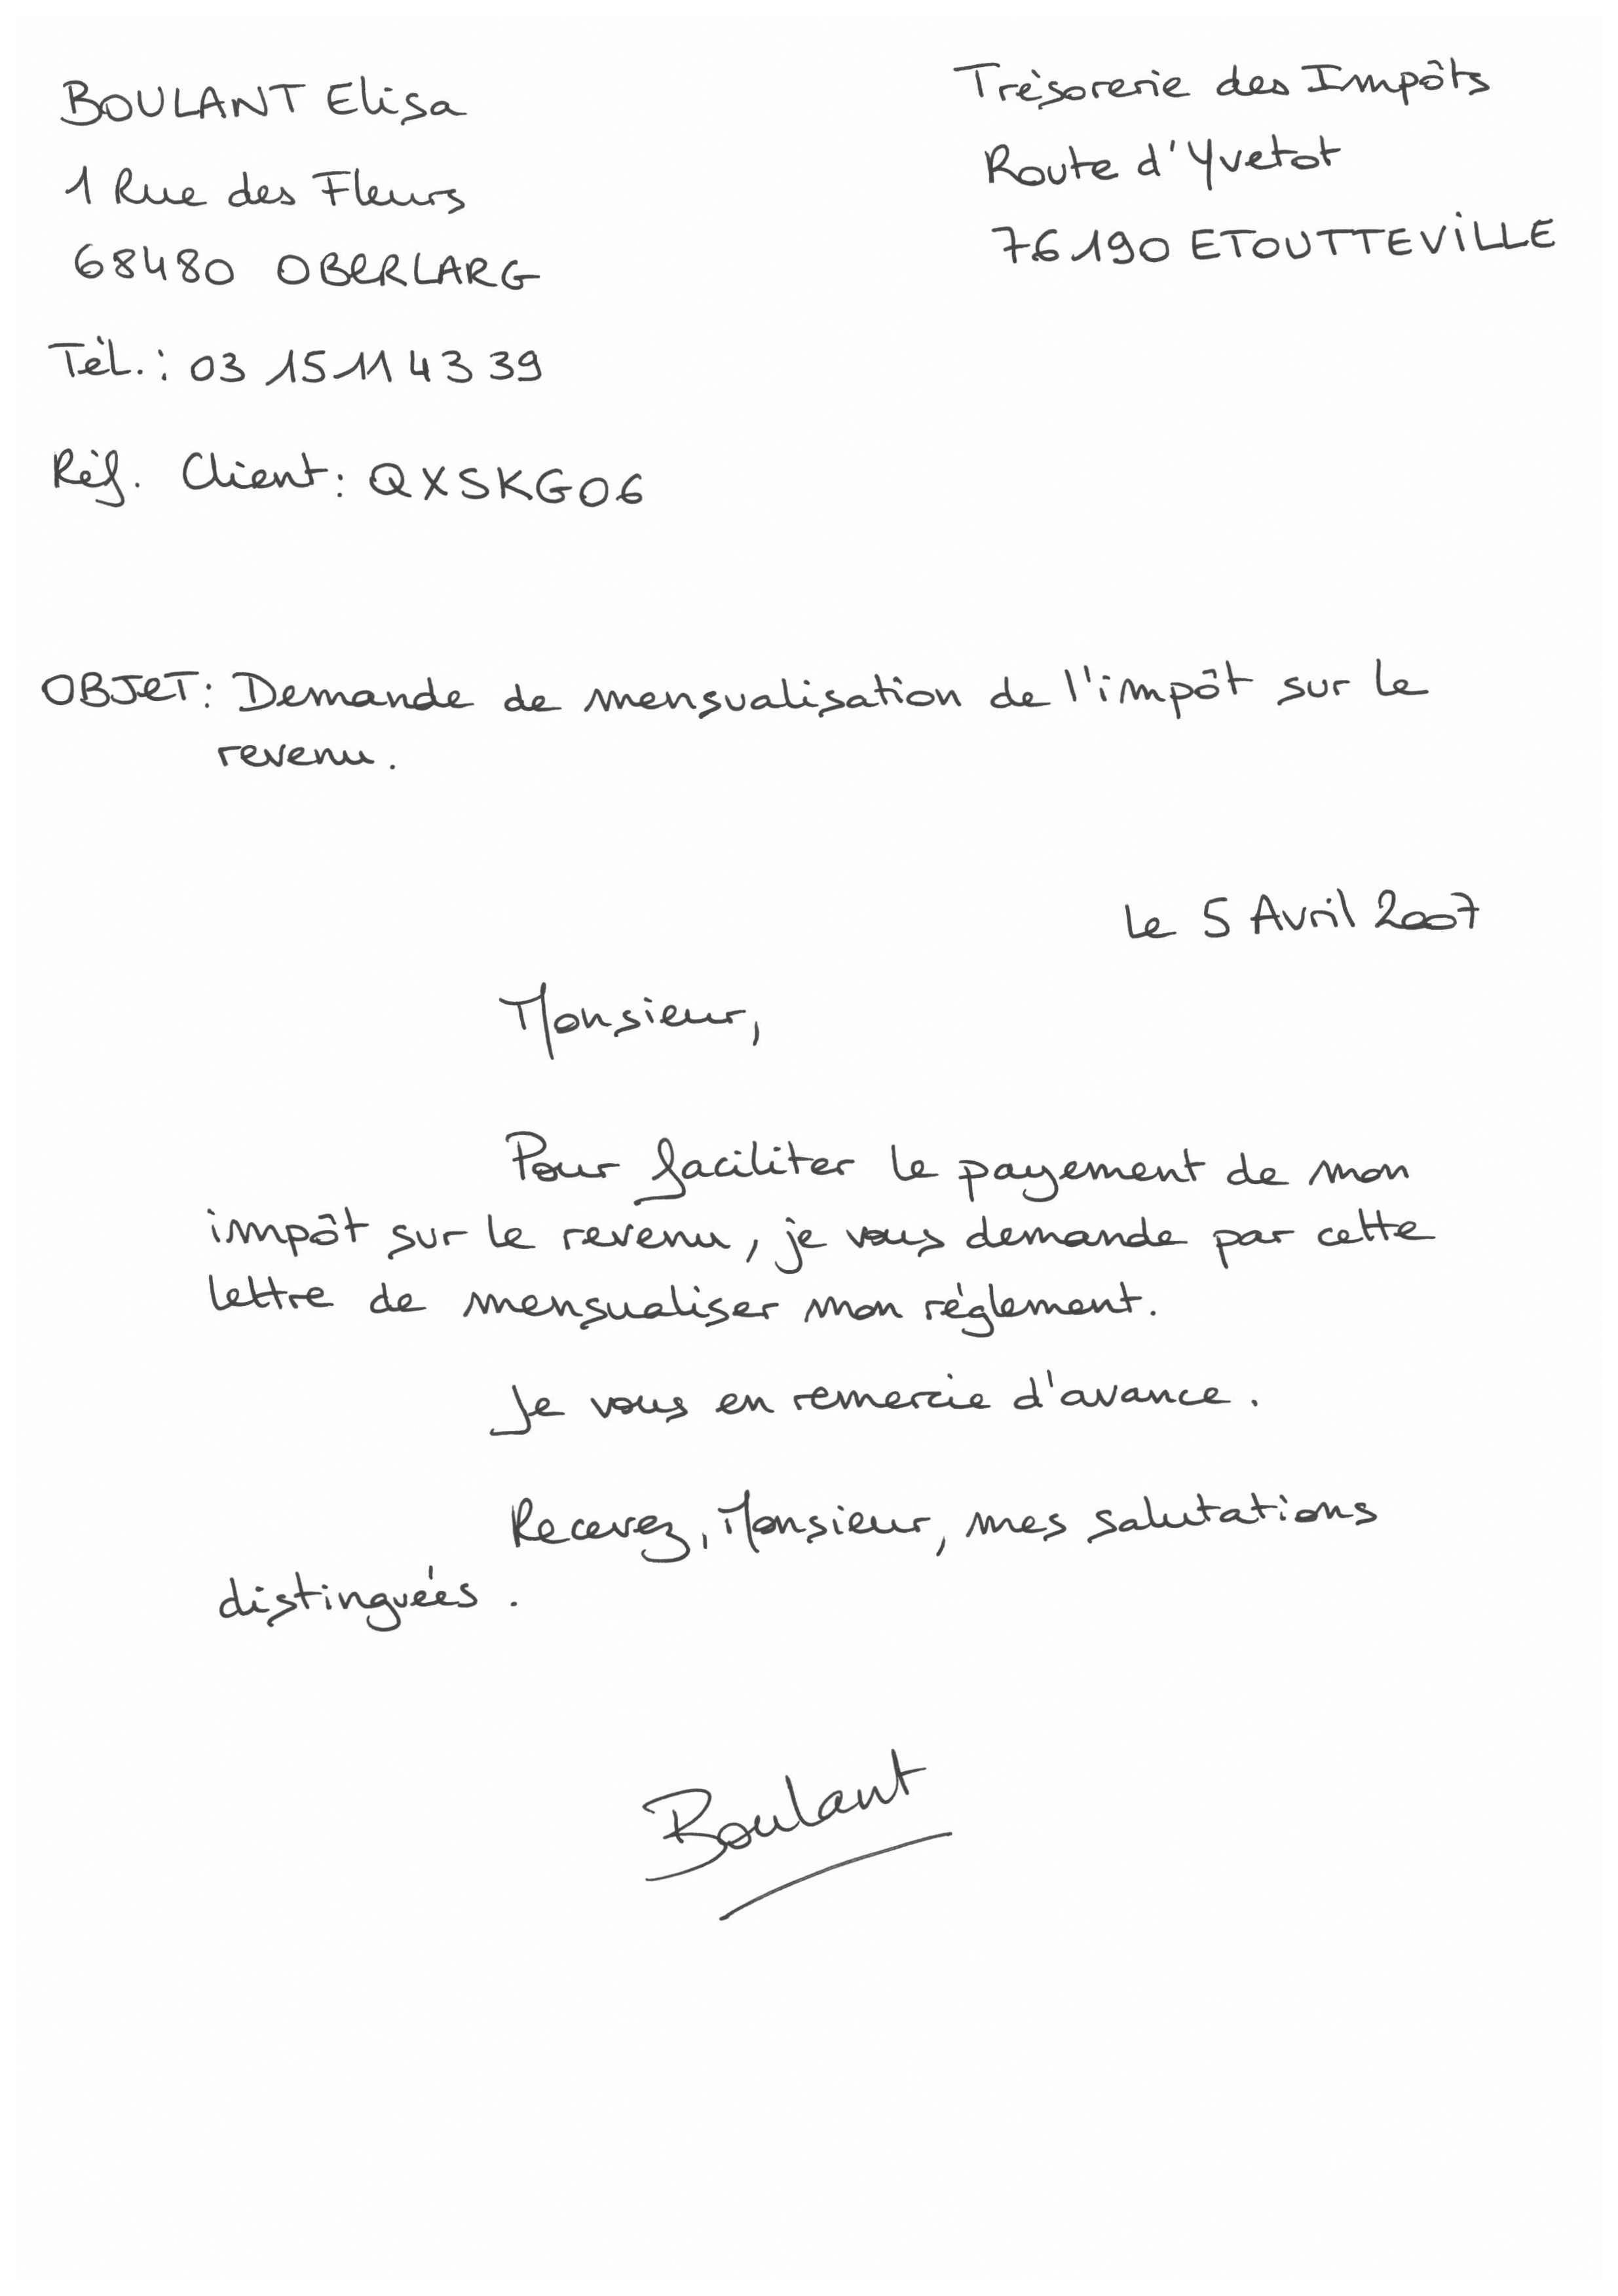 BOULANT Elisa
1 Rue des Fleurs
68480 OBERLARG
Tél.: 03 15 11 43 39
Réf. Client: QXSKG06
Trésorerie des Impôts
Route d'Yvetot
76190 ETOUTTEVILLE
OBJET: Demande de mensualisation de l'impôt sur le
revenu.
Le 5 Avril 2007
Monsieur,
Pour faciliter le payement de mon
impôt sur le revenu, je vous demande par cette
lettre de mensualiser mon réglement.
Je vous en remercie d'avance.
Recevez, Monsieur, mes salutations
distinguées.
Boulant